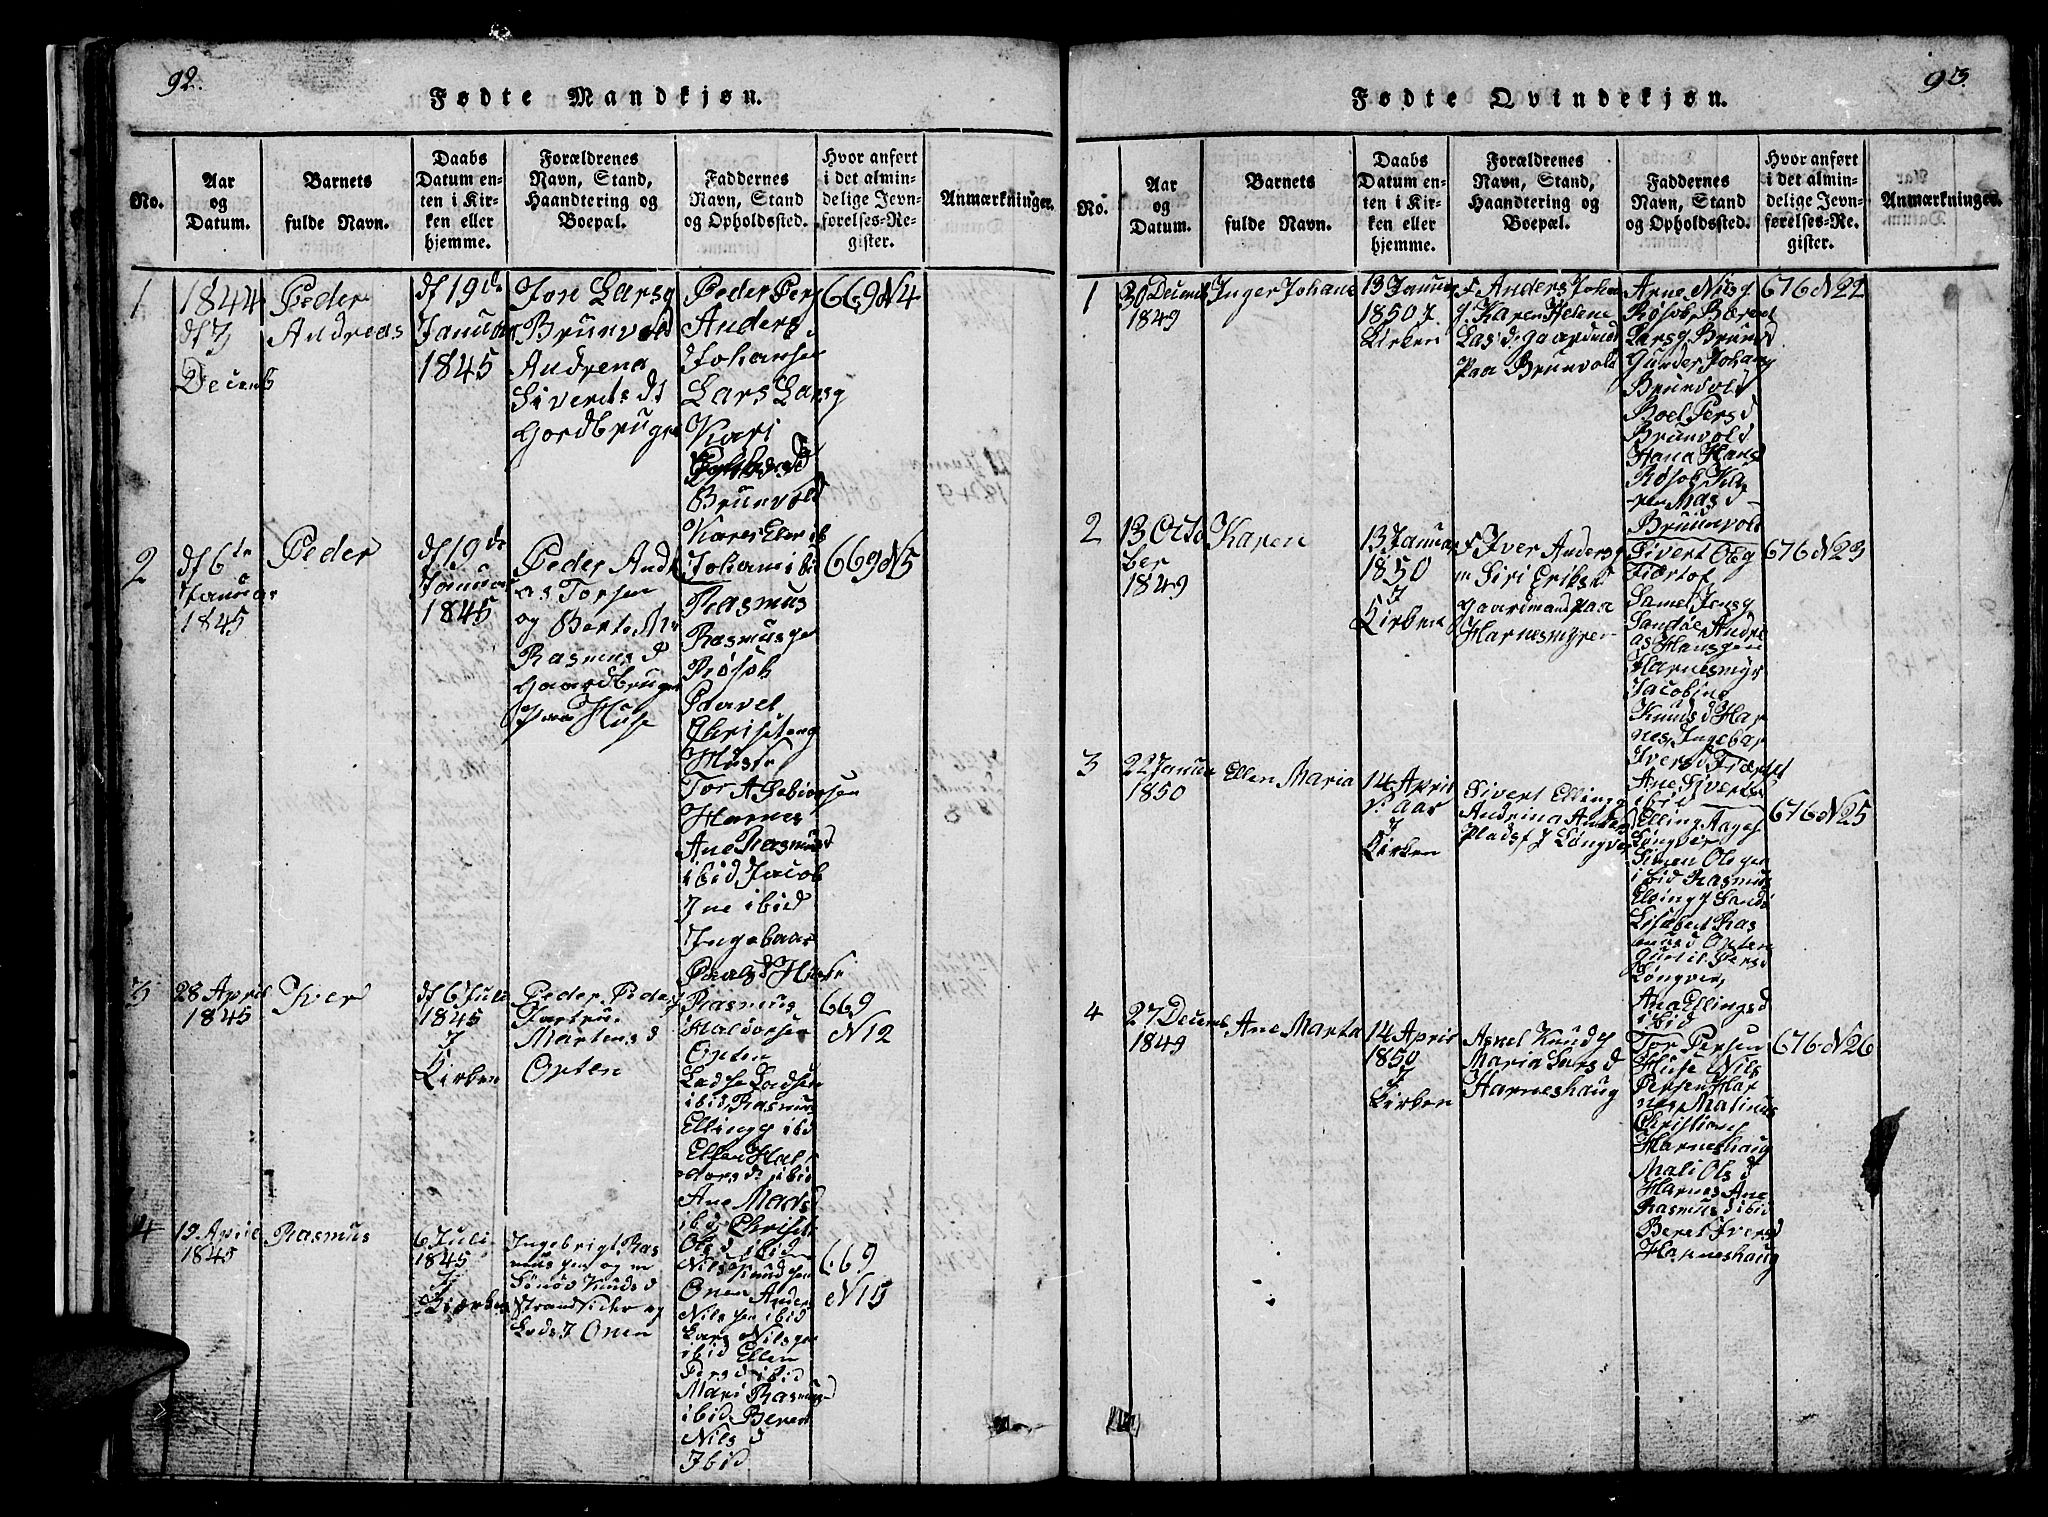 92.
Fødte Mandkjøn.
No.
Aar
og
Datum.
Barnets
fulde Navn.
Daabs
Datum en-
ten i Kir-
ken eller
hjemme.
Forældrenes
Navn, Stand,
Haandtering og
Boepæl.
Faddernes
Navn, Stand
og Opholdssted.
Hvor anført
i det almin-
delige Jevn-
førelses-Re-
gister.
Anmærkninger.
1
1844
d 7
Decemb
Peder
Andreas
d 19 de
Januar
1845
Jon Larsg
Brunvold
Andrena
Siverts d
Gordbruger
Peder Pers
Anders
Johansen
Lars Larsg
Kari
Brunvold
Karen Eler ib
Johane ibid
669 N4
2
d 6 te
Januar
1845
Peder
d 19 de
Januar
1845
Peder Andr
as Torsen
og Berte Ma
Rasmus d
Gaardbruger
paa Huse
Rasmus
Rasmusgen
Røsok
Paavel
Christeng
Huse
Tor Asbiørsen
Harnes
Ane Rasmusd
ibid Jacob
Jne ibid
Ingebaar
Paals d Huse
669 N5
3
28 April
1845
Iver
d 6 Juli
1845
J
Kirken
Peder Peders
Martens d
Opten
Rasmus
Haldorsen
Opten
Ladse Ladsen
ibid, Rasmus
Elling ibid
Ellen Hal
dors d ibid
Ane Mads d
ibid, Christi
Ols d ibid
669
N12
4
19 April
1845
Rasmus
6 Juli
1845
J
Kirken
Ingebrigt Ras
mus sen og m
Sønøv Knuds d
Strandsider og
Lods J Onen
Nils Knudsen
Onen Anders
Nils sen ibid
Lars Nilsgen
ibid Ellen
Pers d ibid
Mari Rasmus d
ibid, Beret
Nils d
Ibid
669
N15
93
Fødte Qvindekjøn.
No.
Aar
og
Datum.
Barnets
fulde Navn.
Daabs
Datum en-
ten i Kir-
ken eller
hjemme.
Forældrenes
Navn, Stand,
Haandtering og
Boepæl.
Faddernes
Navn, Stand
og Opholdssted.
Hvor anført
i det almin-
delige Jevn-
førelses-Re-
gister.
Anmærkninger.
1
30 Decemb
1849
Inger Johane
13 Januar
1850 J
Kirken
F Anders Johan
g. Karen Helene
Las d. gaardmd
paa Brunvold
Arne Nilsg
Røsok Baroel
Larsg Brunvd
Gunder Johang
Brunvold
Boel Pers d
Brunvold
Hana Hans
Røsok Ka
ren Mas d
Brunnvold
676 N22
2
13 Octo
ber
1849
Karen
13 Januar
1850
J
Kirken
F Iver Andersg
m Siri Eriks d
gaardmand paa
Harnesmyren
Sivert Oleg
Fiærtof
Samel Jensg
Sandøe Andre
as Hansgen
Harnesmyr
Jacobine
Knuds d Har
nes, Ingebor
Ivers d Fiærtof
Ane Siverts
ibid
676 N23
3
22 Januar
1850
Ellen Maria
14 April
s. aar
J
Kirken
Sivert Elling
Andrina Anders
pladsf J Longver
Elling Aages
Longver
Simen Olesen
ibid Rasmus
Elling J Sandø
Lisabet Ras
mus d Opten
Gurtil Pers d
Longver
Ana Ellings d
ibid
676 N25
4
27 Decemb
1849
Ane Marta
14 April
1850
J
Kirken
Asnel Knud g
Maria Lars d
Harneshaug
Tor Persen
Huse Nils
Persen Har
nes, Matinus
Christians
Harneshaug
Mali Ols d
Harnes Ane
Rasmus d ibid
Beret Ivers d
Harneshaug
676 N26